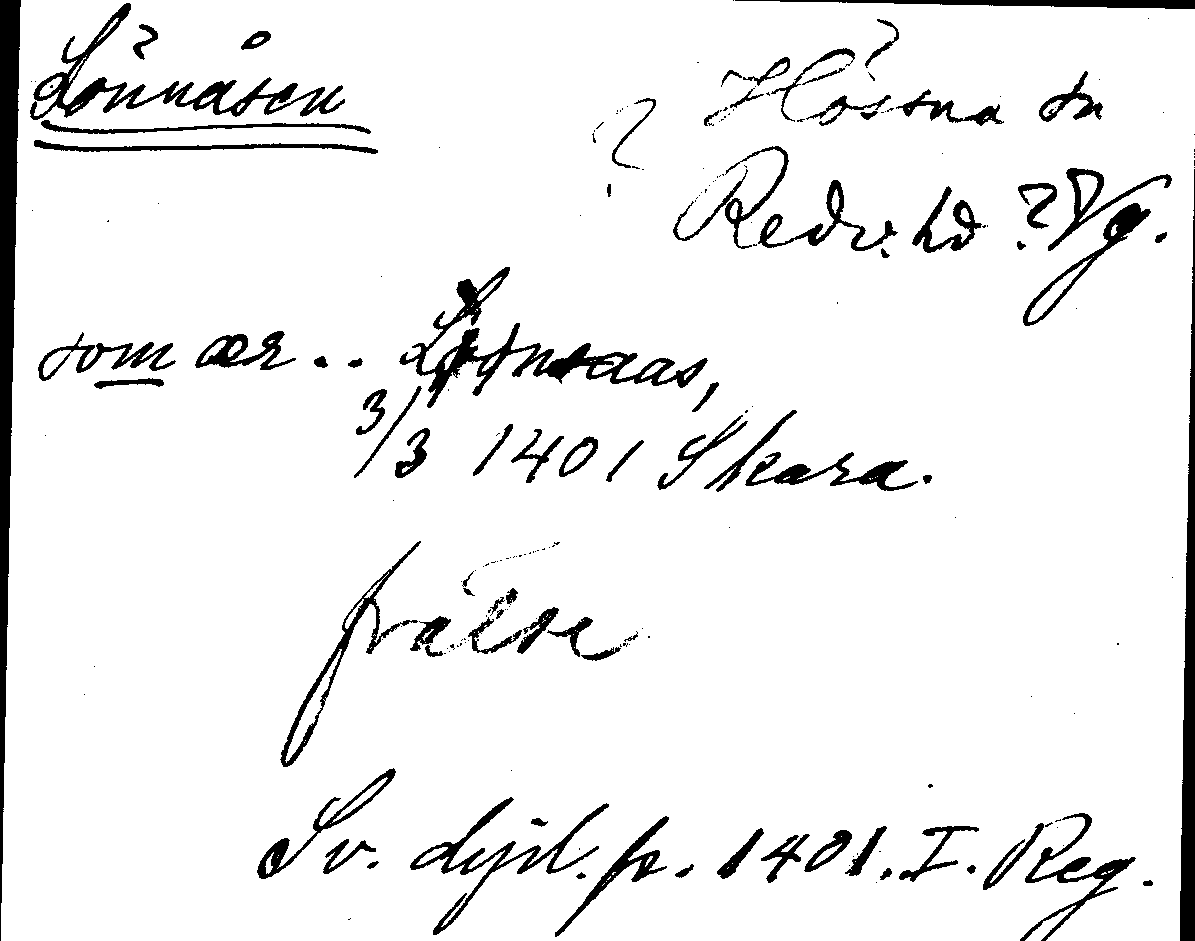 Lönnåsen
? Hössna sn
Redv. hd ? Vg.
som ær ..
3/3 1401 Skara.
frälse
Sv. dipl. fr. 1401. I. Reg.